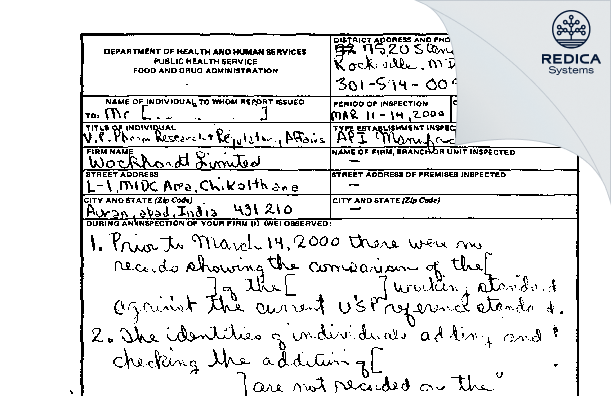 REDICA
Systems
DEPARTMENT OF HEALTH AND HUMAN SERVICES
PUBLIC HEALTH SERVICE
FOOD AND DRUG ADMINISTRATION
DISTRICT ADDRESS AND PHO
7520 Stan
Rockville, MD
301-594-00
NAME OF INDIVIDUAL TO WHOM REPORT ISSUED
TO: Mr [ ]
PERIOD OF INSPECTION
MAR 11-14, 2000
TITLE OF INDIVIDUAL
V.P. Pharm Research & Regulatory Affairs
TYPE ESTABLISHMENT INSPEC
API Manufac
FIRM NAME
Wockhardt Limited
NAME OF FIRM, BRANCH OR UNIT INSPECTED
—
STREET ADDRESS
L-1, MIDC Area, Chikalthana
STREET ADDRESS OF PREMISES INSPECTED
—
CITY AND STATE (Zip Code)
Auran,abad, India 431210
CITY AND STATE (Zip Code)
—
DURING AN INSPECTION OF YOUR FIRM (I) (WE) OBSERVED:
1. Prior to March 14, 2000 there were no
records showing the comparison of the [
] of the [ ] working standard
against the current USP reference standard.
2. The identities of individuals adding and
checking the addition of [
] are not recorded on the